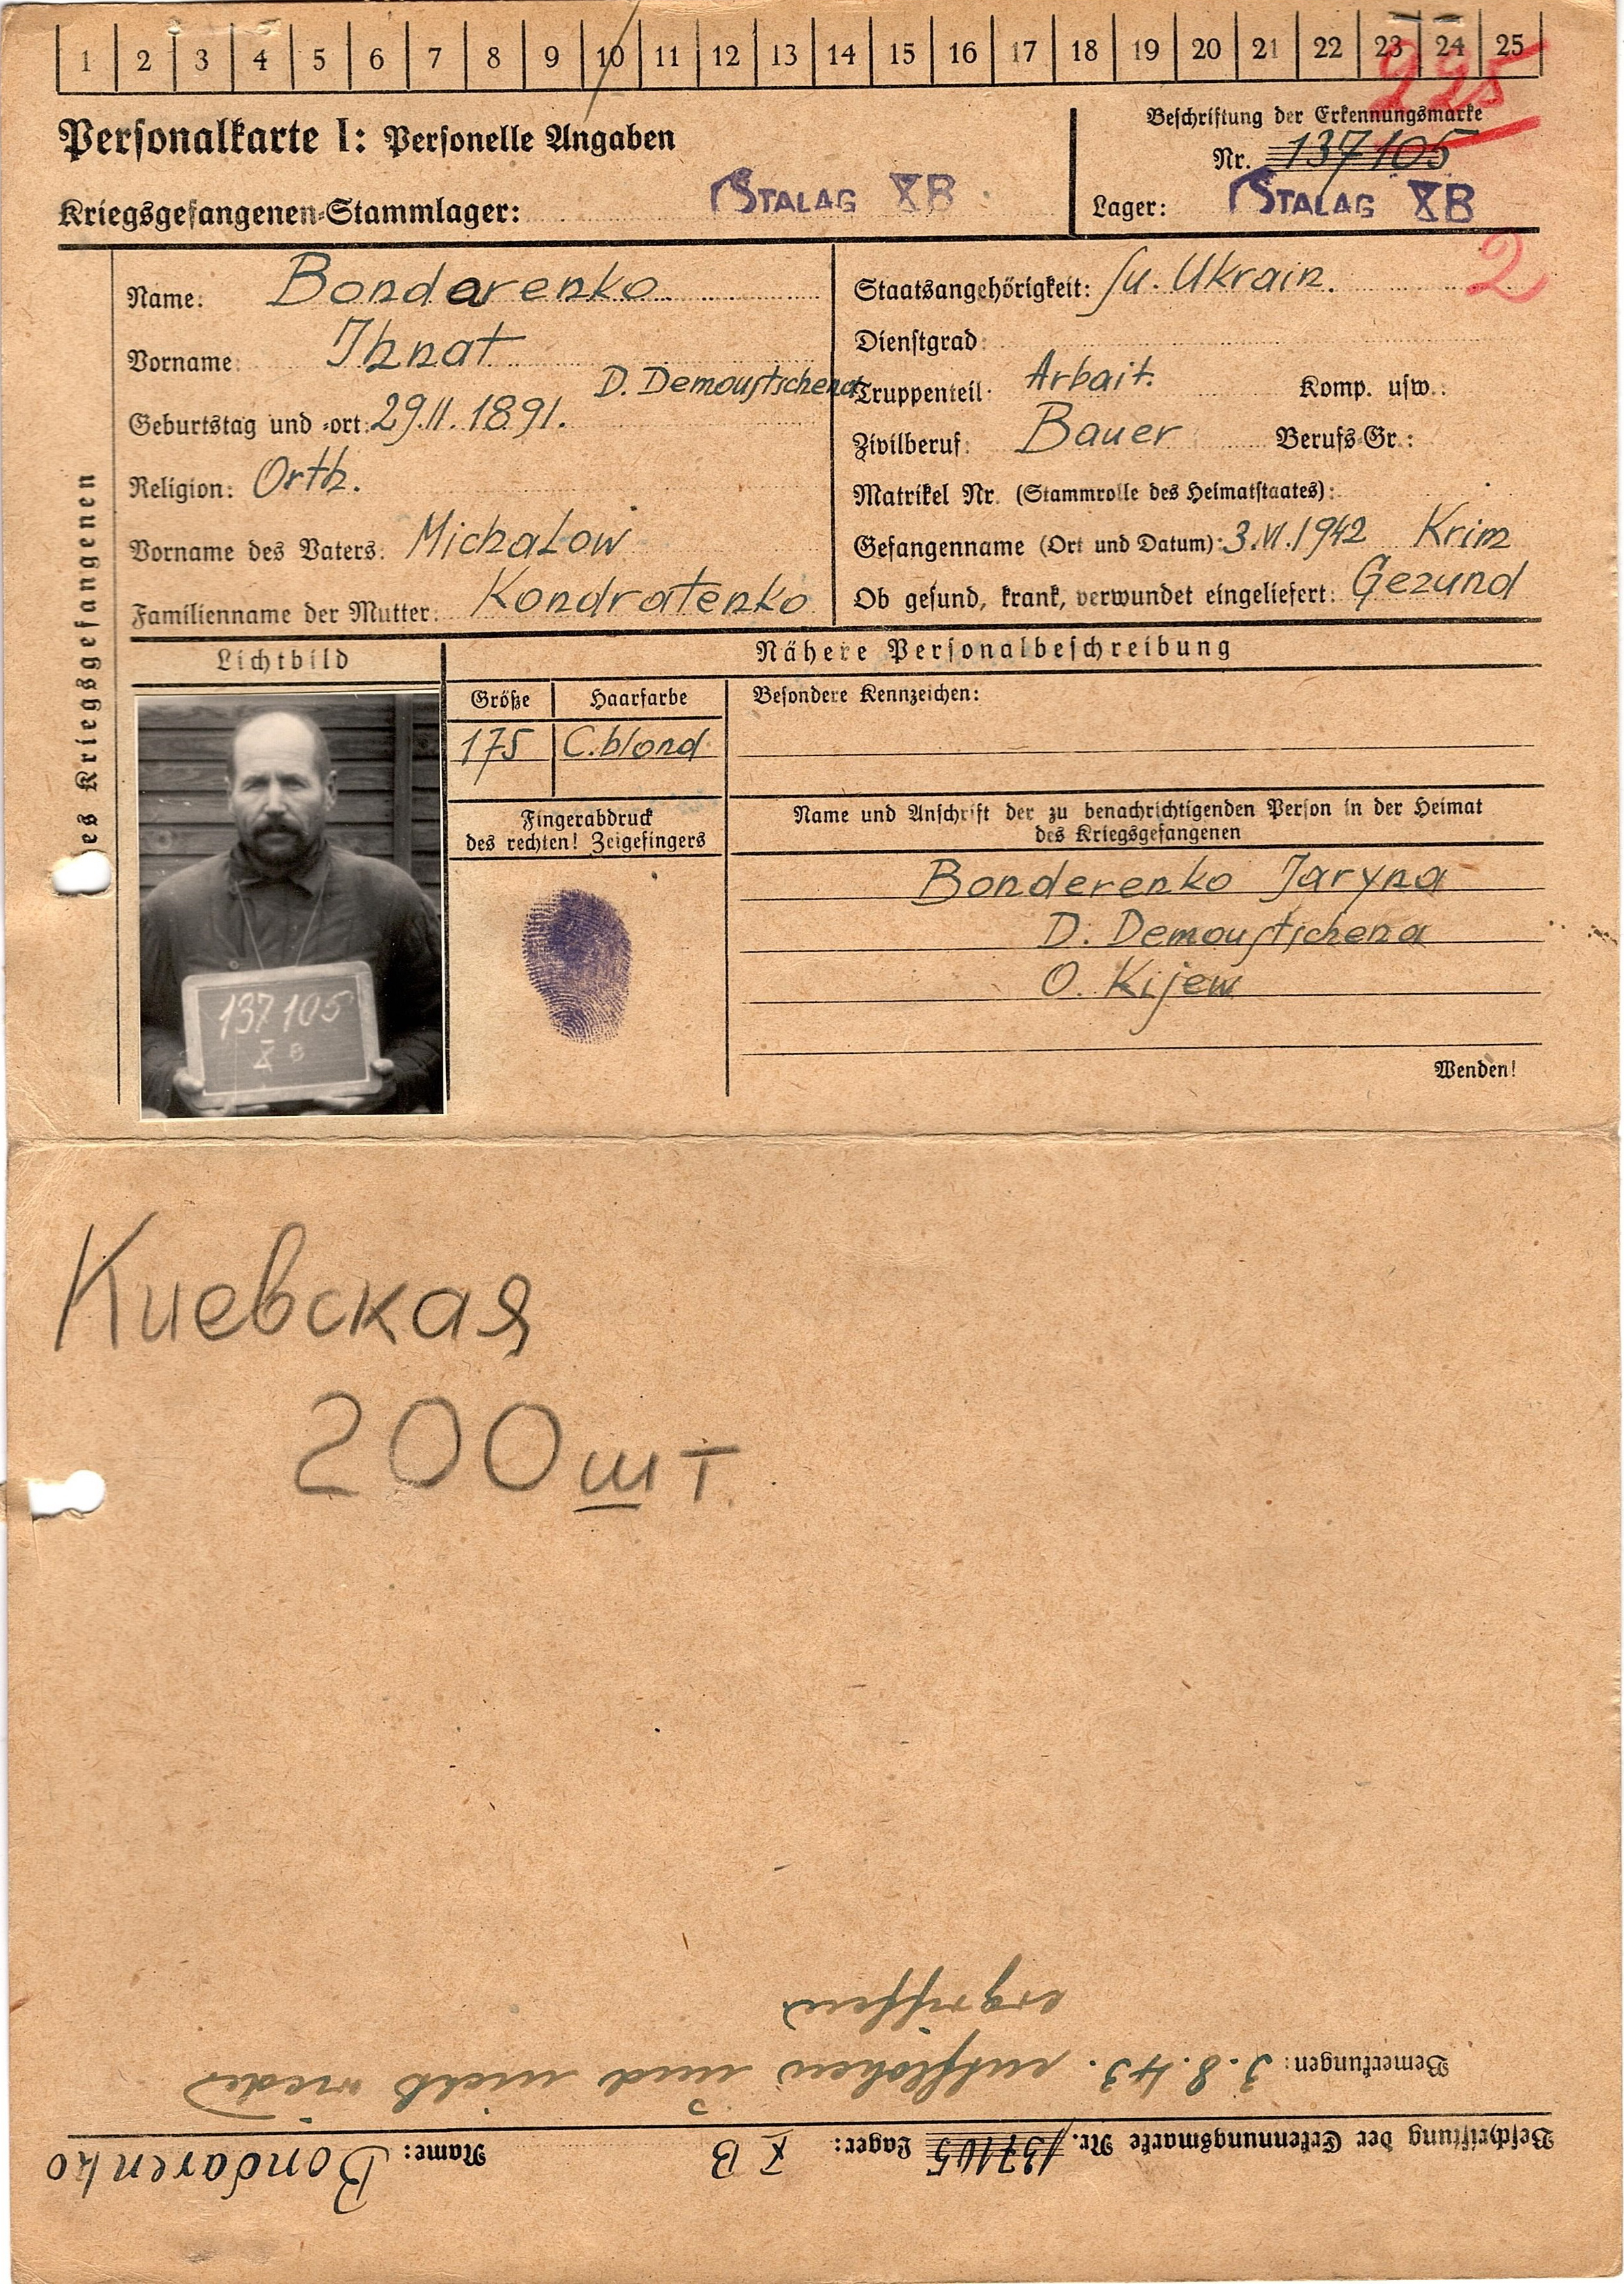 1 2 3 4 5 6 7 8 9 10 11 12 13 14 15 16 17 18 19 20 21 22 23 24 25
225
Personalkarte I: Personelle Angaben
Beschriftung der Erkennungsmarke
Nr. 137105
Kriegsgefangenen-Stammlager: STALAG XB
Lager: STALAG XB
2
des Kriegsgefangenen
Name: Bondarenko
Vorname: Ihnat
D. Demoustschena
Geburtstag und -ort: 29.II.1891.
Religion: Orth.
Vorname des Vaters: Michalow
Familienname der Mutter: Kondratenko
Staatsangehörigkeit: Su. Ukrain.
Dienstgrad:
Truppenteil: Arbait. Komp. usw.:
Zivilberuf: Bauer Berufs-Gr.:
Matrikel Nr. (Stammrolle des Heimatstaates):
Gefangenname (Ort und Datum): 3.VI.1942 Krim
Ob gesund, krank, verwundet eingeliefert: Gezund
Lichtbild
137105
X B
Nähere Personalbeschreibung
Größe Haarfarbe
175 C.blond
Besondere Kennzeichen:
Fingerabdruck
des rechten! Zeigefingers
Name und Anschrift der zu benachrichtigenden Person in der Heimat
des Kriegsgefangenen
Bonderenko Jaryna
D. Demoustschena
O. Kijew
Wenden!
Киевская
200 шт
Beschriftung der Erkennungsmarke Nr. 137105 Lager: X B Name: Bondarenko
Bemerkungen: 3.8.43. entflohen und nicht wieder
ergriffen